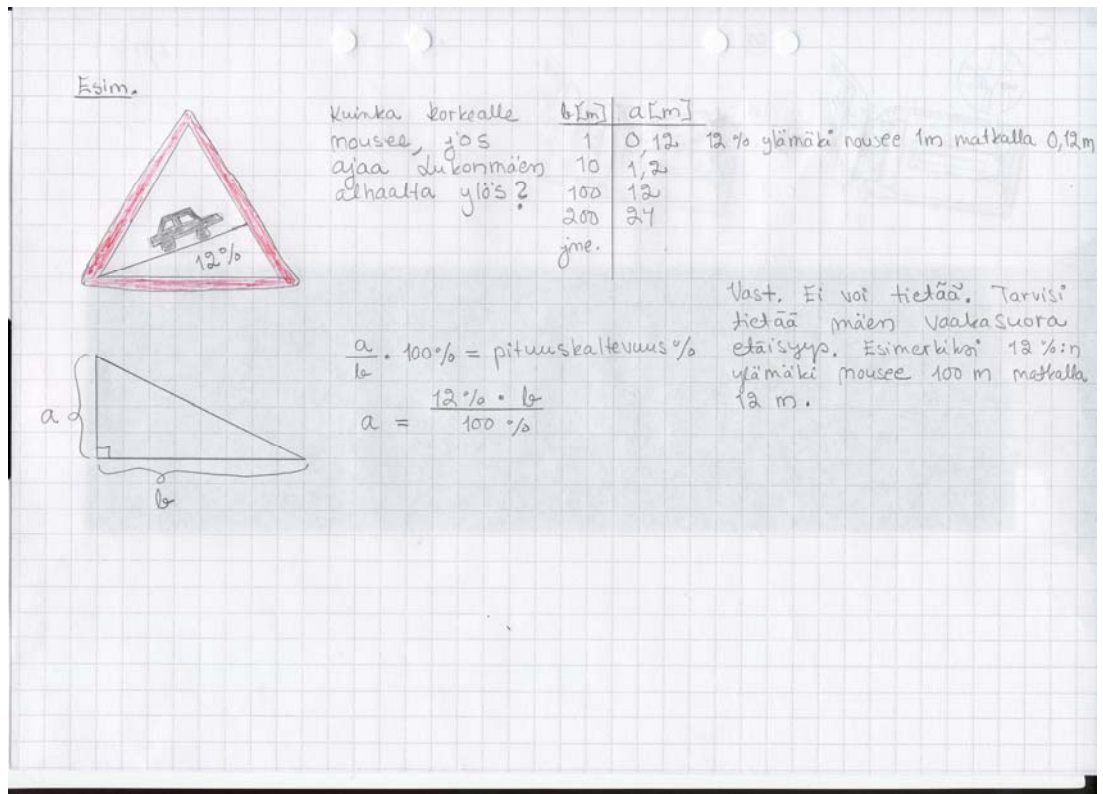 Esim.
Kuinka korkealle
nousee, jos
ajaa Lukonmäen
alhaalta ylös?
b[m] a[m]
1 0,12 12 % ylämäki nousee 1m matkalla 0,12m
10 1,2
100 12
200 24
jne.
12%
Vast. Ei voi tietää. Tarvisi
tietää mäen vaakasuora
etäisyys. Esimerkiksi 12 %:n
ylämäki nousee 100 m matkalla
12 m.
a/b · 100% = pituuskaltevuus %
a = 12% · b / 100 %
a
b